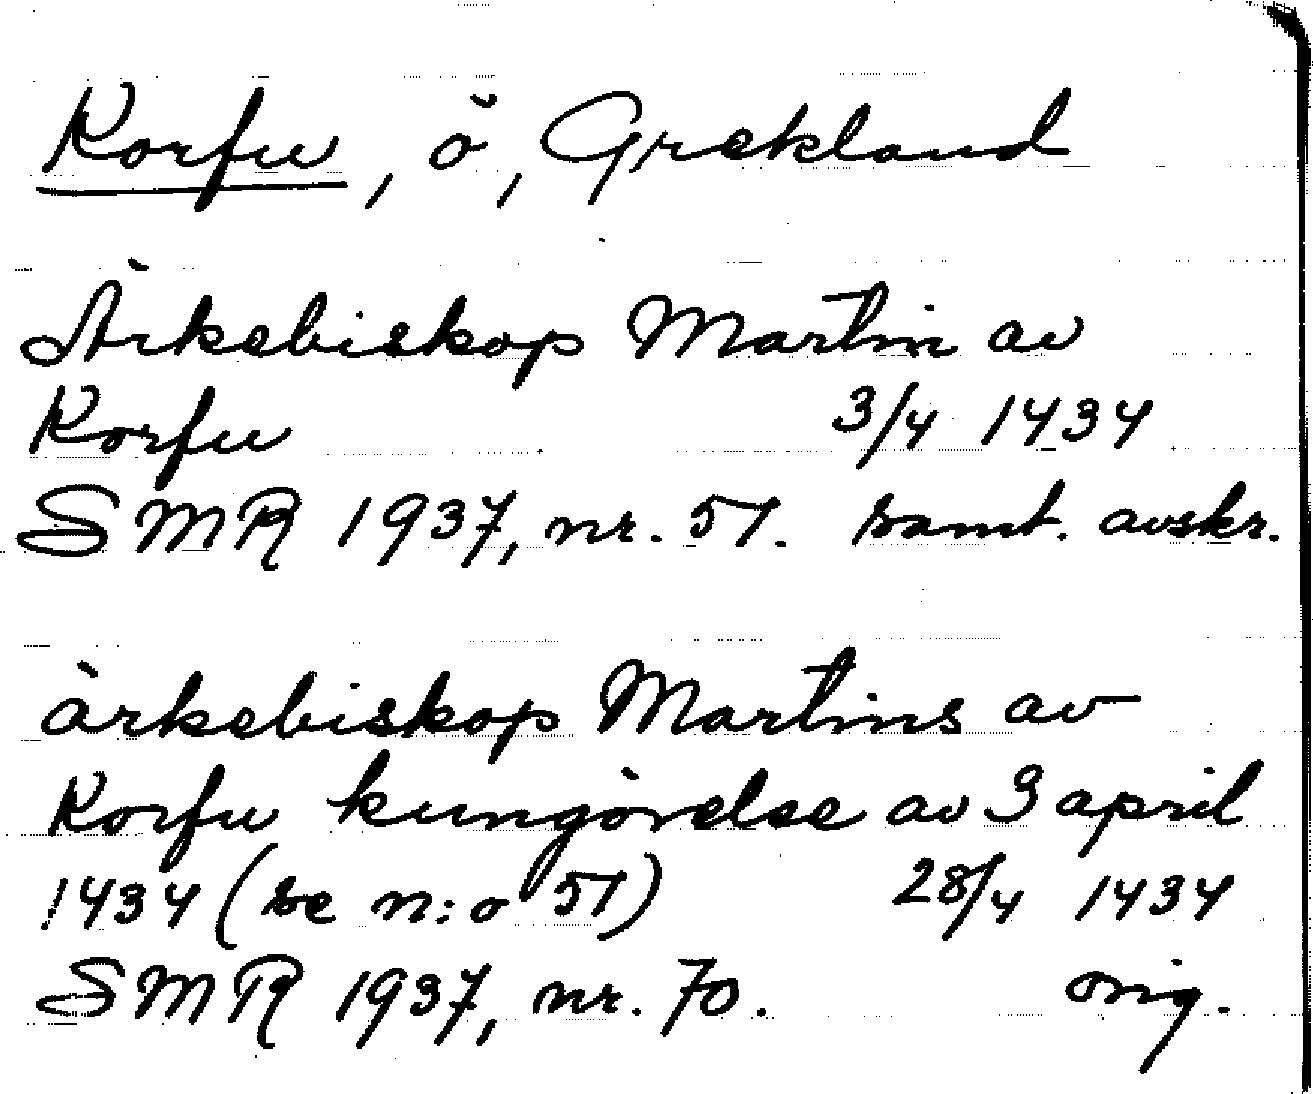 Korfu, ö, Grekland
Ärkebiskop Martin av
Korfu 3/4 1434
SMR 1937, nr. 51. samt. avskr.
ärkebiskop Martins av
Korfu kungörelse av 3 april
1434 (se n:o 51) 28/4 1434
SMR 1937, nr. 70. orig.